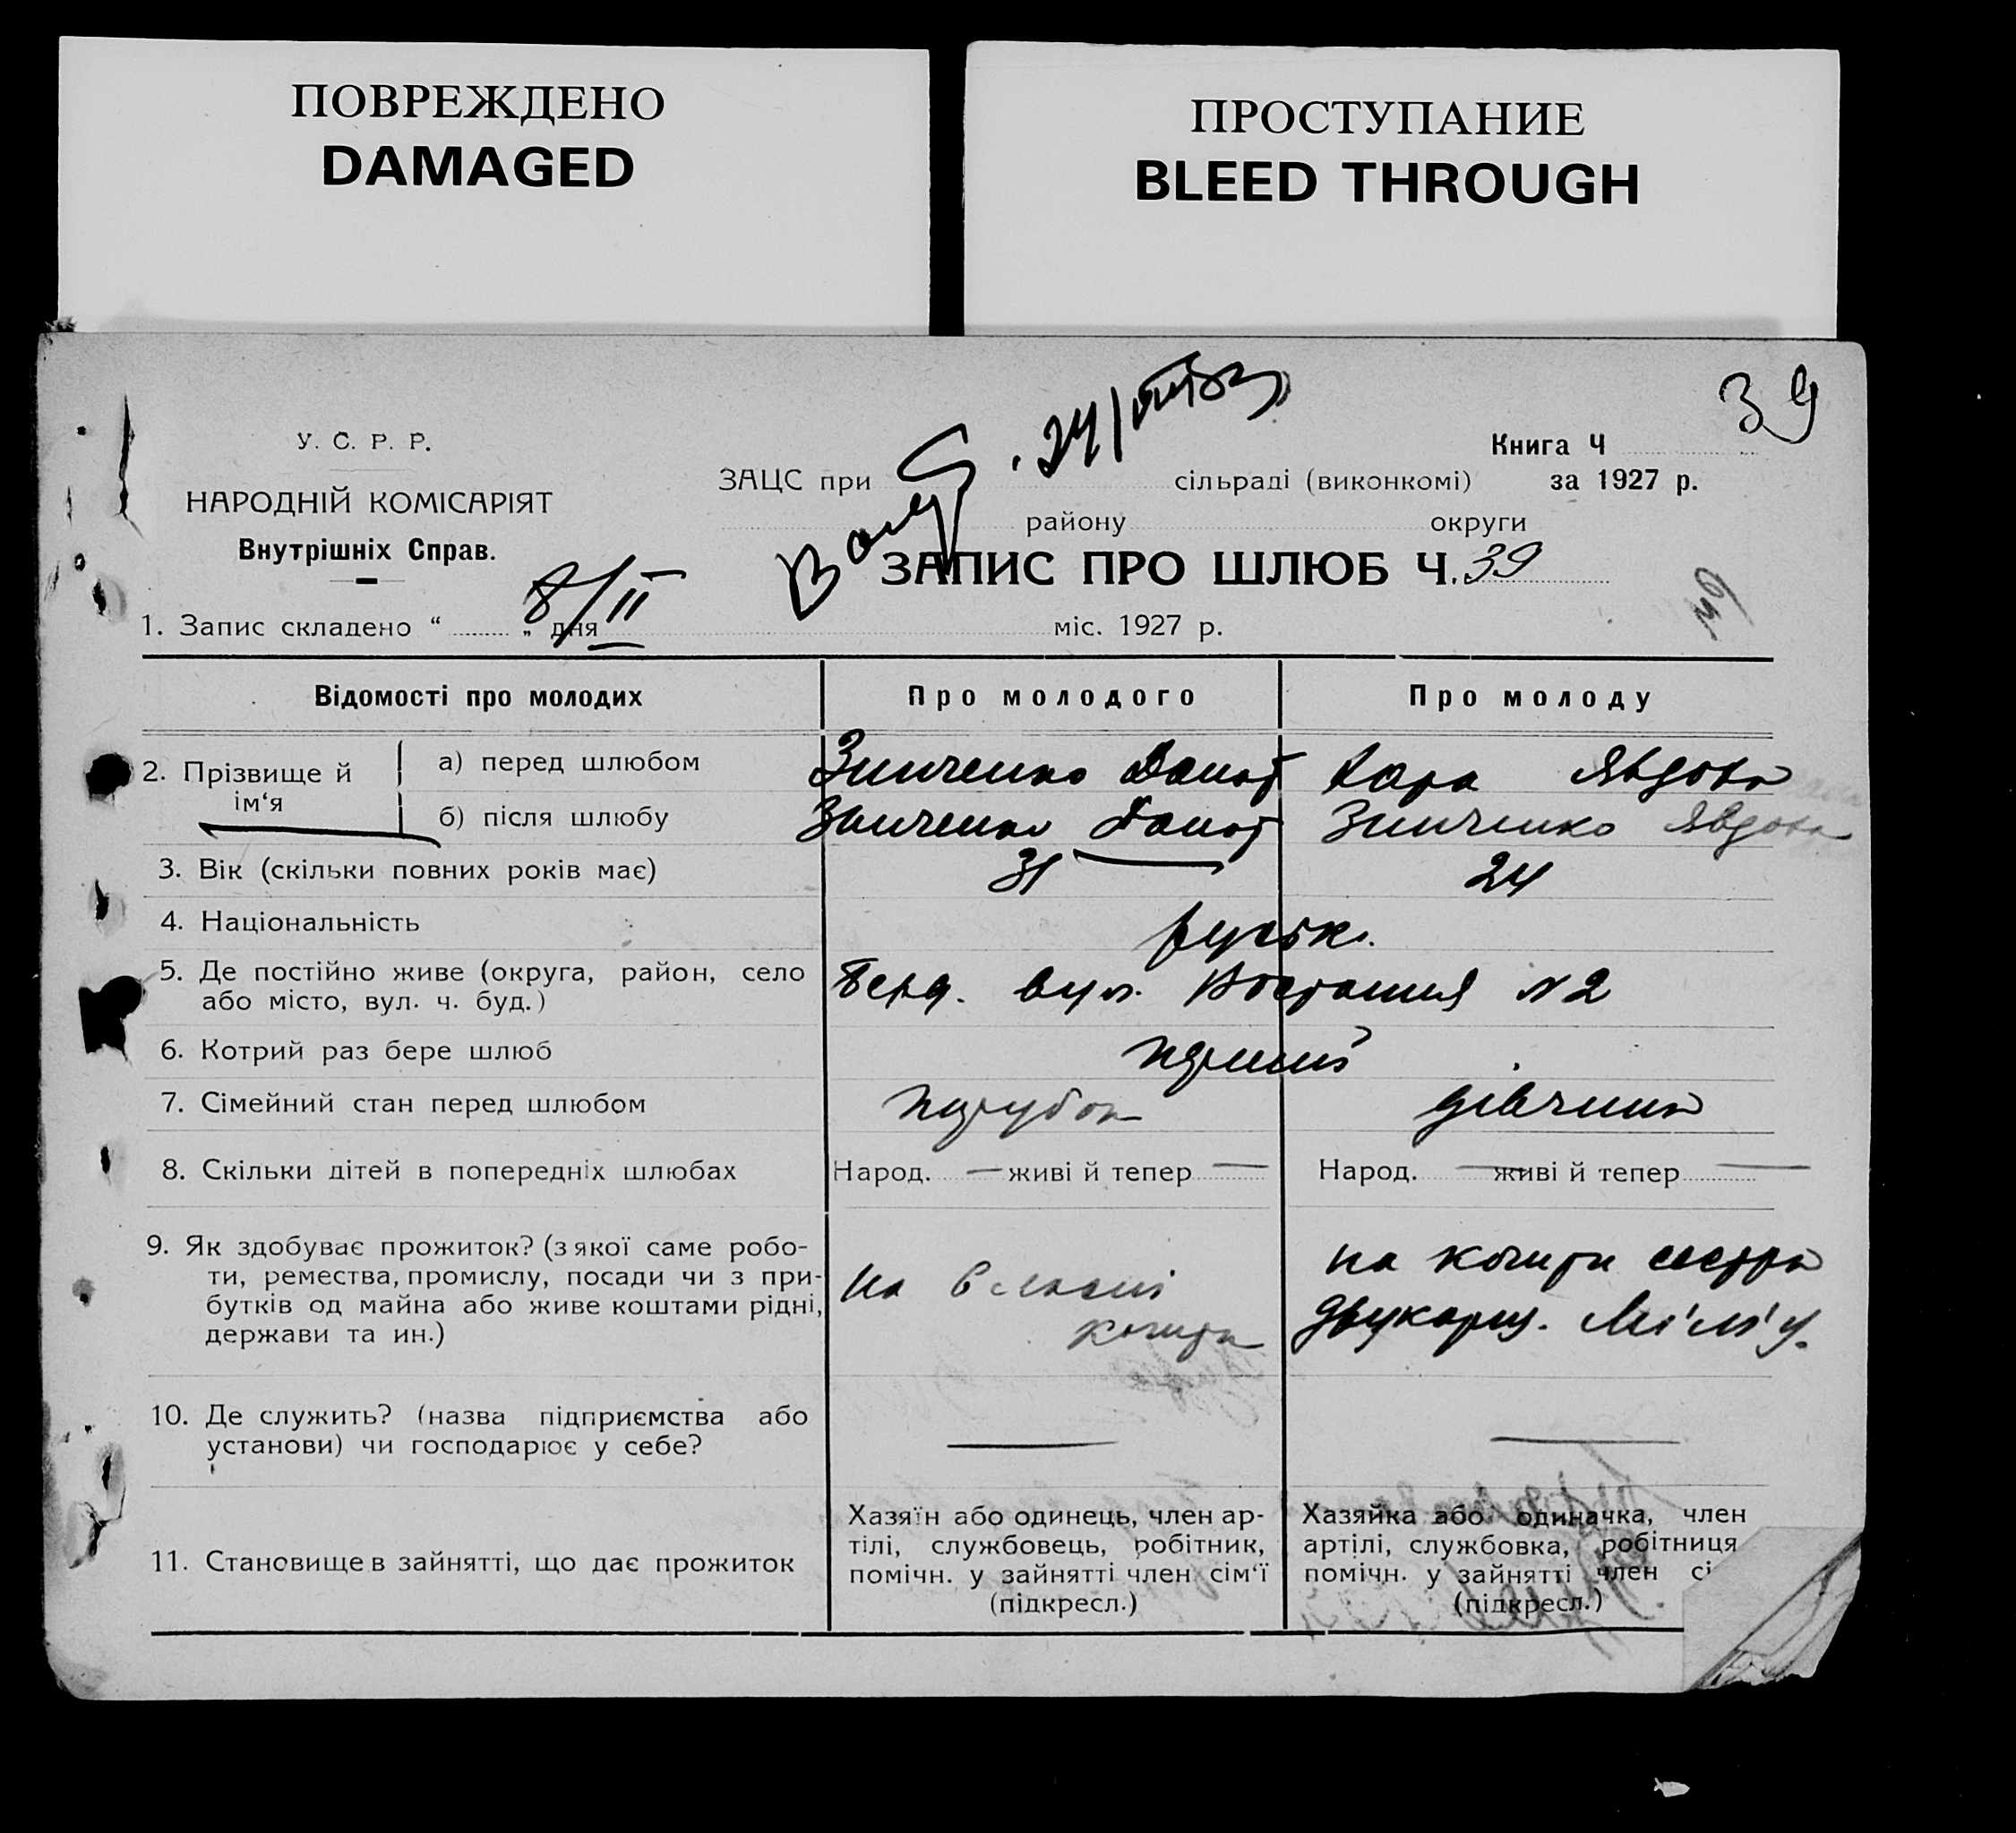 ПОВРЕЖДЕНО
DAMAGED
ПРОСТУПАНИЕ
BLEED THROUGH
39
У. С. Р. Р.
НАРОДНІЙ КОМІСАРІЯТ
Внутрішніх Справ.
Книга Ч
ЗАЦС при сільраді (виконкомі) за 1927 р.
району округи
ЗАПИС ПРО ШЛЮБ Ч. 39
1. Запис складено “ „ дня 8/II міс. 1927 р.
Відомості про молодих Про молодого Про молоду
2. Прізвище й ім‘я
а) перед шлюбом Зинченко Явдоха
б) після шлюбу Зинченко Зинченко Явдоха
3. Вік (скільки повних років має) 31 24
4. Національність руськ.
5. Де постійно живе (округа, район, село
або місто, вул. ч. буд.) вул. Востания №2
6. Котрий раз бере шлюб перший
7. Сімейний стан перед шлюбом парубок дівчина
8. Скільки дітей в попередніх шлюбах Народ. — живі й тепер — Народ. — живі й тепер —
9. Як здобуває прожиток? (з якої саме робо-
ти, ремества, промислу, посади чи з при-
бутків од майна або живе коштами рідні,
держави та ин.)
на власні
кошти
на кошти сестри
10. Де служить? (назва підприємства або
установи) чи господарює у себе?
11. Становище в зайнятті, що дає прожиток
Хазяїн або одинець, член ар-
тілі, службовець, робітник,
помічн. у зайнятті член сім‘ї
(підкресл.)
Хазяйка або одиначка, член
артілі, службовка, робітниця
помічн. у зайнятті член сі
(підкресл.)